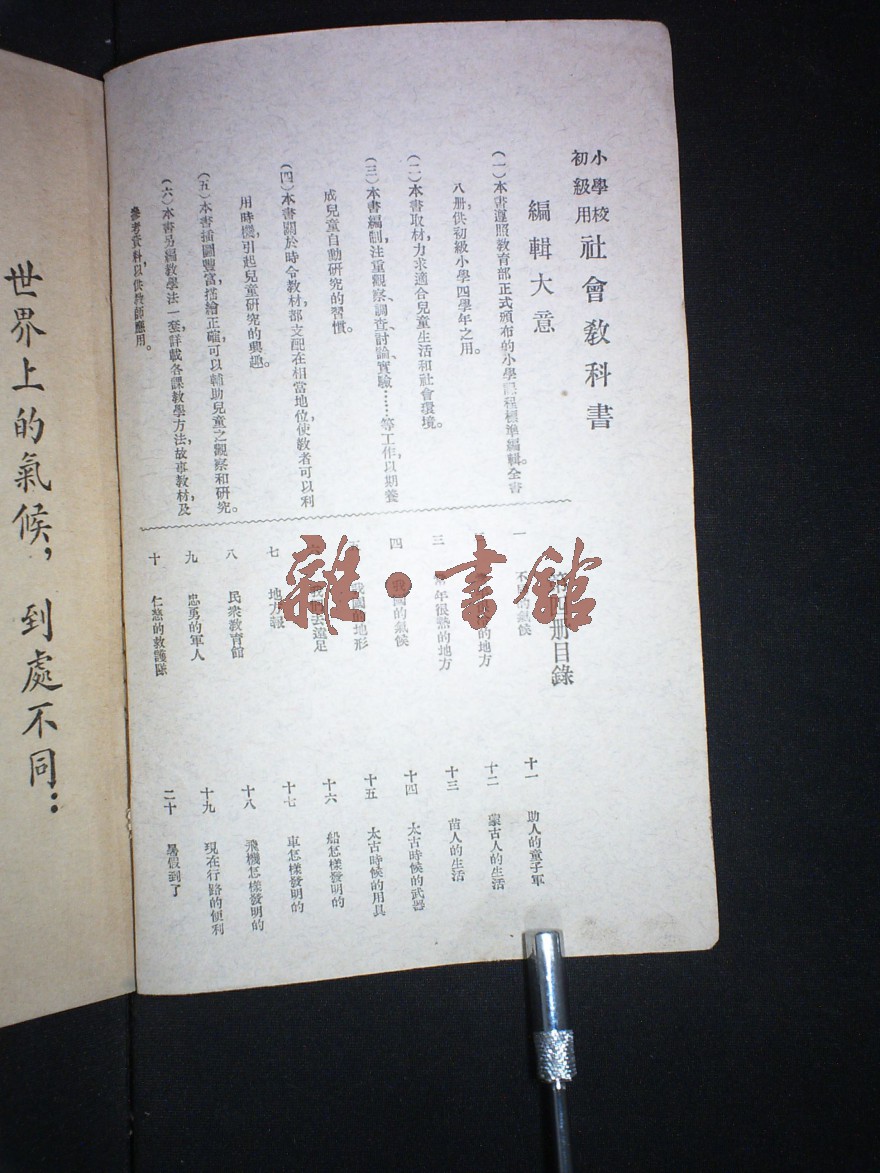 小學校
初級用
社會教科書
編輯大意
(一)本書遵照教育部正式頒布的小學課程標準編輯。全書
八册，供初級小學四學年之用。
(二)本書取材，力求適合兒童生活和社會環境。
(三)本書編制，注重觀察、調查、討論、實驗……等工作，以期養
成兒童自動研究的習慣。
(四)本書關於時令教材都支配在相當地位，使教者可以利
用時機，引起兒童研究的興趣。
(五)本書插圖豐富，描繪正確，可以輔助兒童之觀察和研究。
(六)本書另編教學法一套，詳載各課教學方法，故事教材，及
參考資料，以供教師應用。
第四册目錄
一 不 的氣候
的地方
三 年很熱的地方
四 我國的氣候
五 我國的地形
去遠足
七 地方報
八 民衆教育館
九 忠勇的軍人
十 仁慈的救護隊
十一 助人的童子軍
十二 蒙古人的生活
十三 苗人的生活
十四 太古時候的武器
十五 太古時候的用具
十六 船怎樣發明的
十七 車怎樣發明的
十八 飛機怎樣發明的
十九 現在行路的便利
二十 暑假到了
世界上的氣候，到處不同：
雜·書館